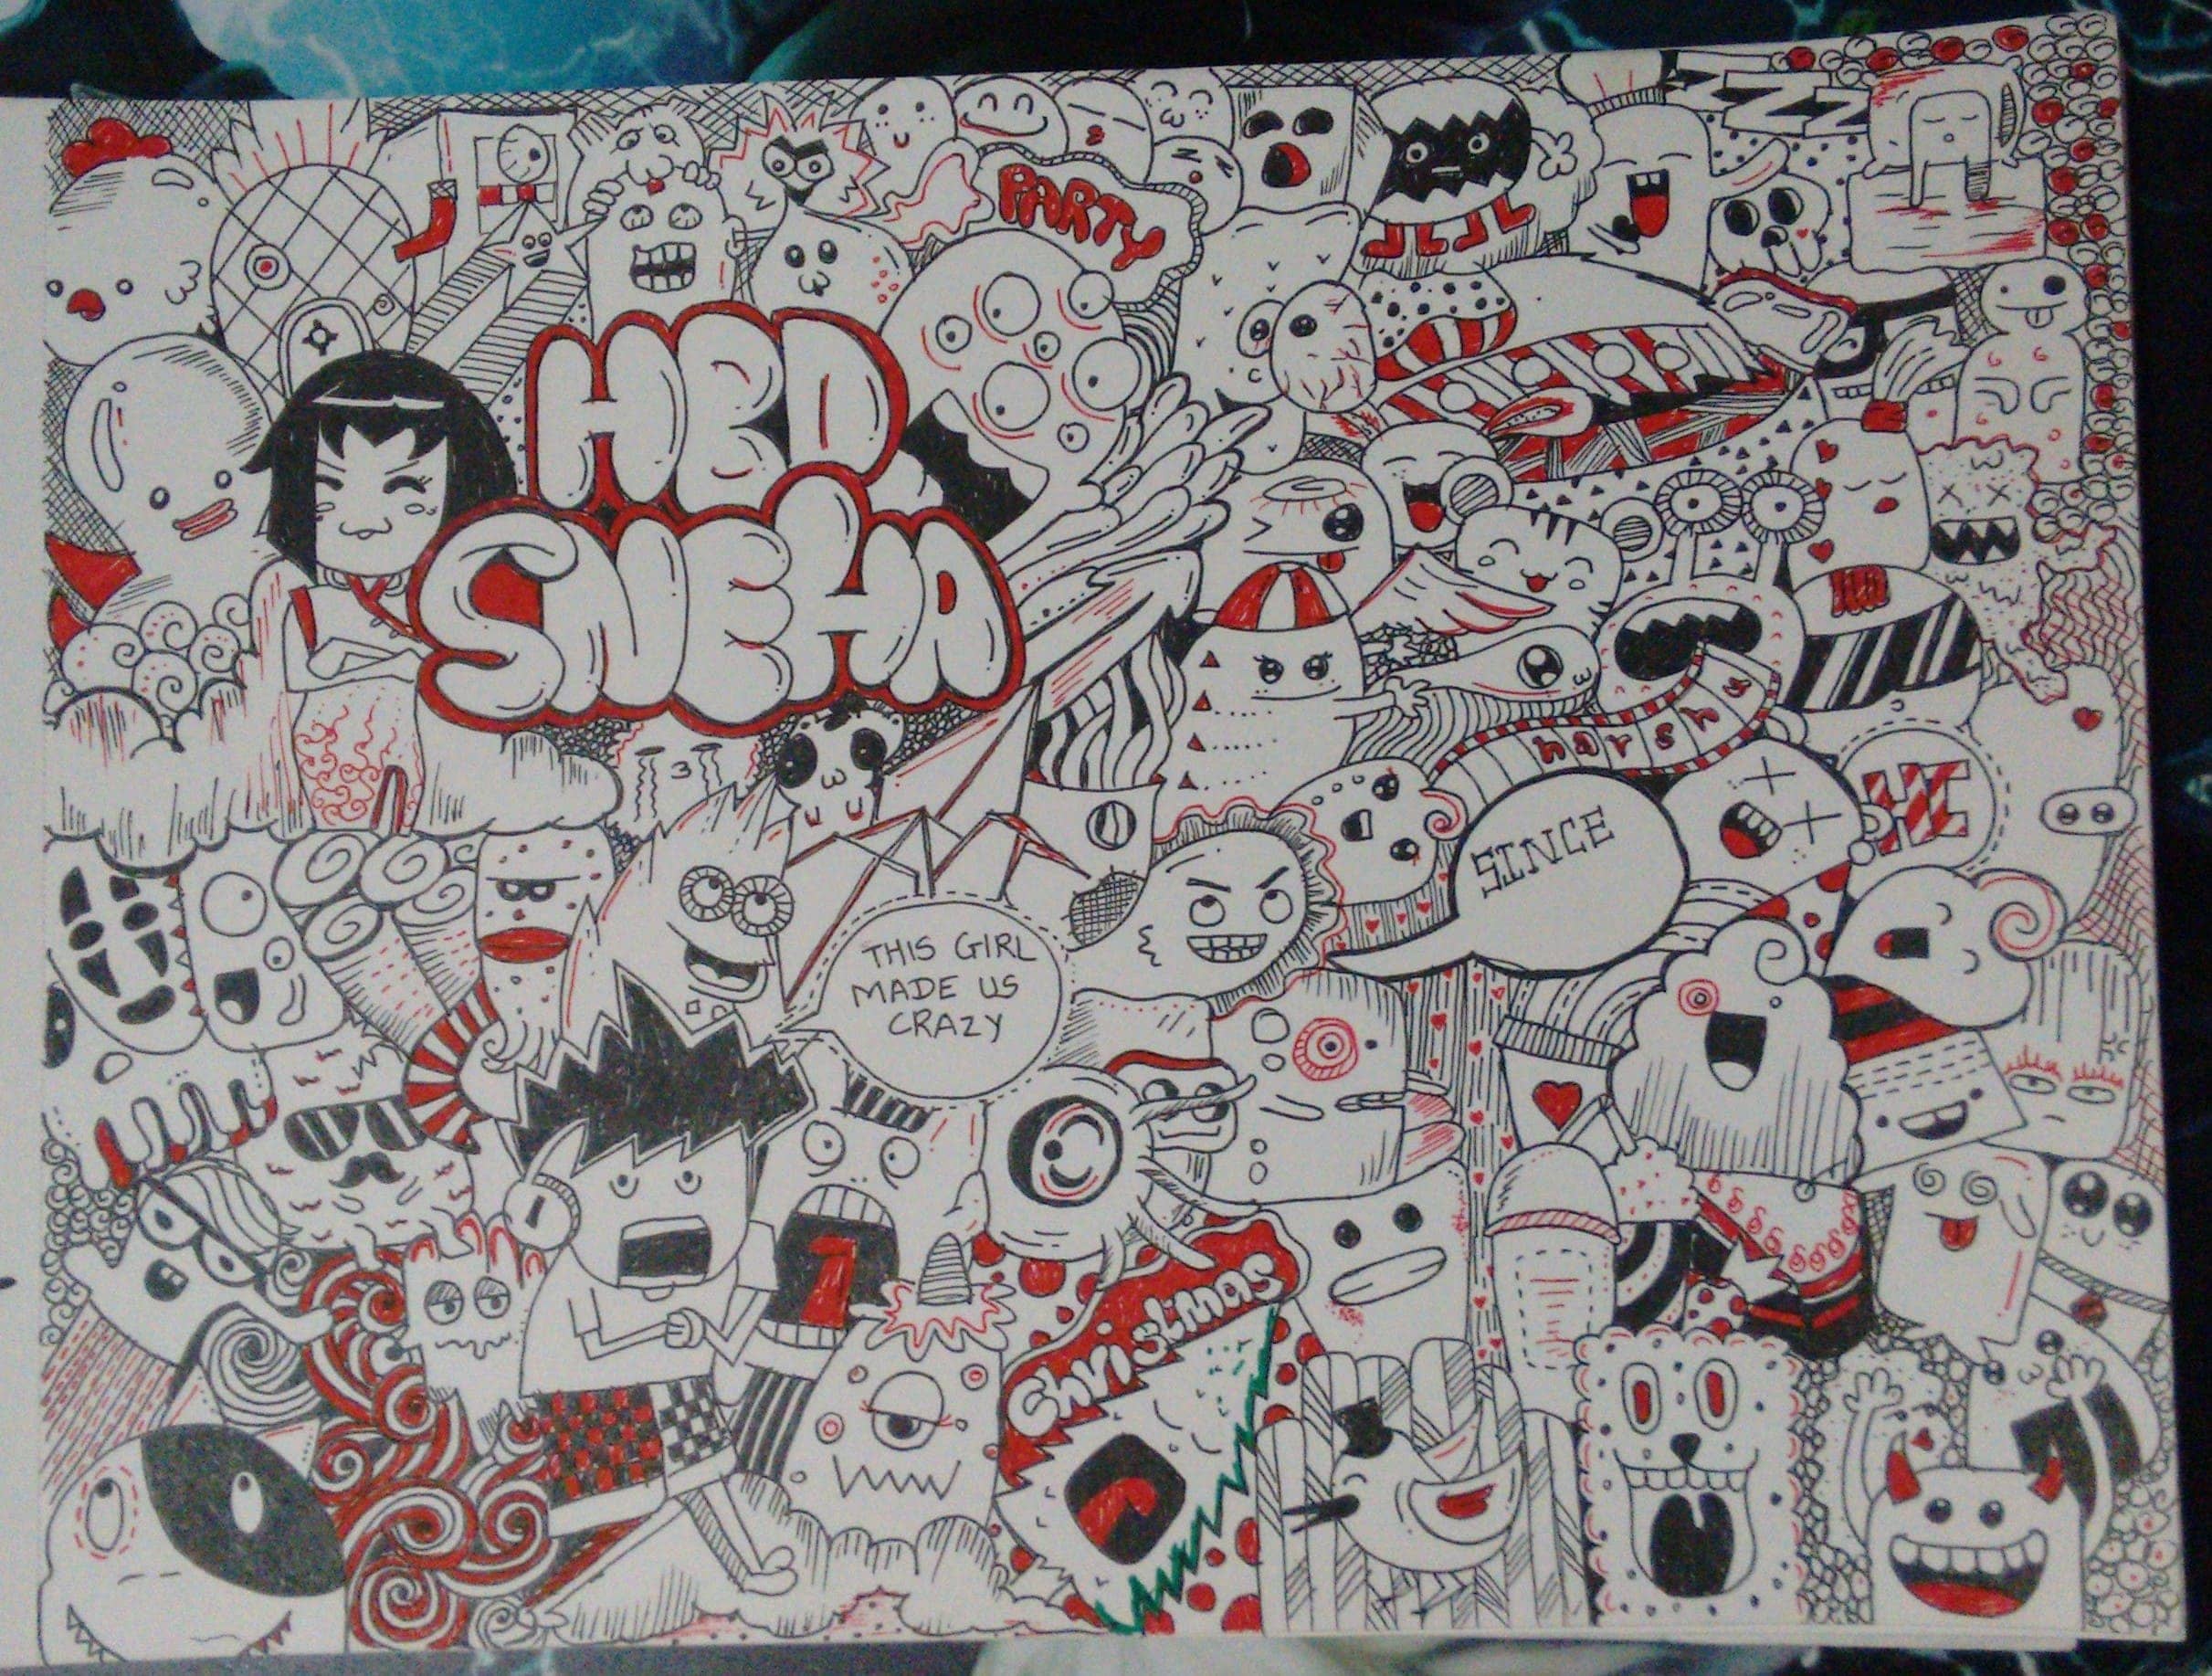 PARTY
HBD
SNEHA
harsh
HI
SINCE
THIS GIRL
MADE US
CRAZY
Christmas